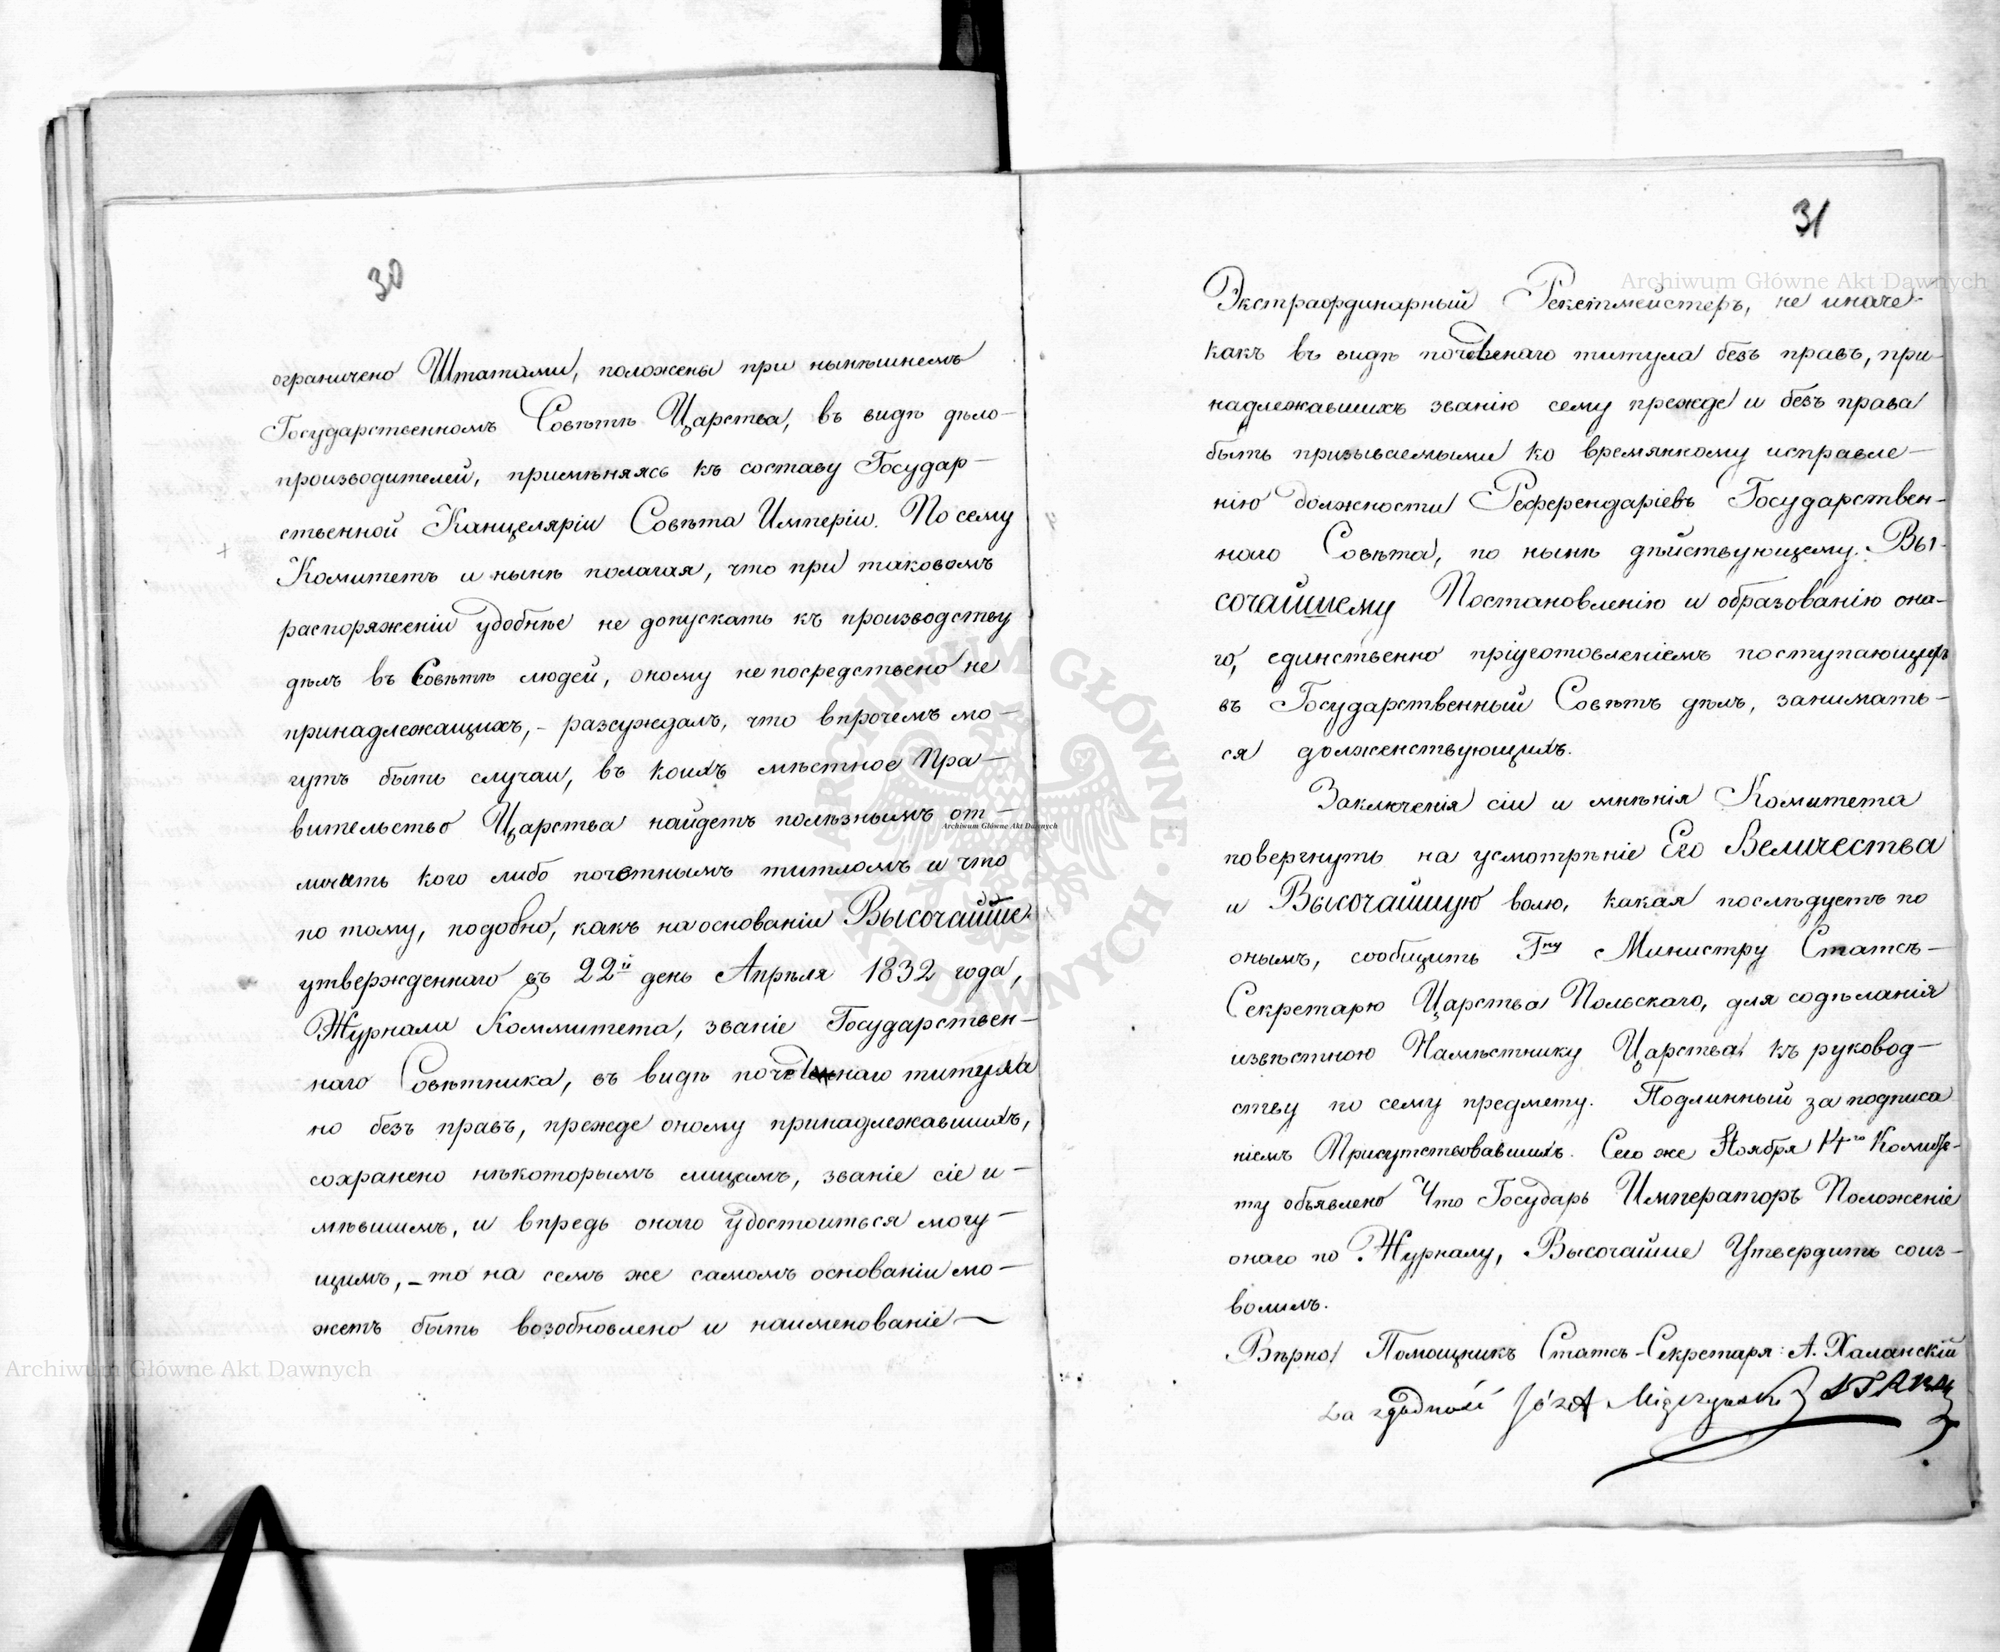 30
ограничено Штатами, положены при нынѣшнемъ
Государственномъ Совѣтѣ Царства, въ видѣ дѣло-
производителей, примѣняясь къ составу Государ-
ственной Канцеляріи Совѣта Имперіи. По сему
Комитетъ и нынѣ полагая, что при таковомъ
распоряженіи удобнѣе не допускать къ производству
дѣлъ въ Совѣтѣ людей, оному непосредствено не
принадлежащихъ, - разсуждалъ, что впрочемъ мо-
гутъ быть случаи, въ коихъ мѣстное Пра-
вительство Царства найдетъ полѣзнымъ от-
личить кого либо почетнымъ титломъ и что
по тому, подобно, какъ на основаніи Высочайше
утвержденнаго въ 22й день Апрѣля 1832 года,
Журнала Коммитета, званіе Государствен-
наго Совѣтника, въ видѣ почетнаго титула
но безъ правъ, прежде оному принадлежавшихъ,
сохранено нѣкоторымъ лицамъ, званіе сіе и-
мѣвшимъ, и впредь онаго удостоиться могу-
щимъ, - то на семъ же самомъ основаніи мо-
жетъ быть возобновлено и наименованіе
31
Экстраординарный Рекетмейстеръ, не иначе
какъ въ видѣ почетнаго титула безъ правъ, при-
надлежавшихъ званію сему прежде и безъ права
быть призываемыми ко времянному исправле-
нію должности Референдаріевъ Государствен-
наго Совѣта, по нынѣ дѣйствующему Вы-
сочайшему Постановленію и образованію она-
го, единственно пріуготовленіемъ поступающихъ
въ Государственный Совѣтъ дѣлъ, занимать-
ся долженствующихъ.
Заключенія сіи и мнѣнія Комитета
повергнуть на усмотрѣніе Его Величества
и Высочайшую волю, какая послѣдуетъ по
онымъ, сообщить Гну Министру Статсъ-
Секретарю Царства Польскаго, для содѣланія
извѣстною Намѣстнику Царства къ руковод-
ству по сему предмету. Подлинный за подписа
ніемъ Присутствовавшихъ. Сего же Ноября 14го Комите-
ту объявлено Что Государь Императоръ Положеніе
онаго по Журналу, Высочайше Утвердить соиз-
волилъ.
Вѣрно: Помощникъ Статсъ-Секретаря: А. Халанскій
Za zgodność Józef